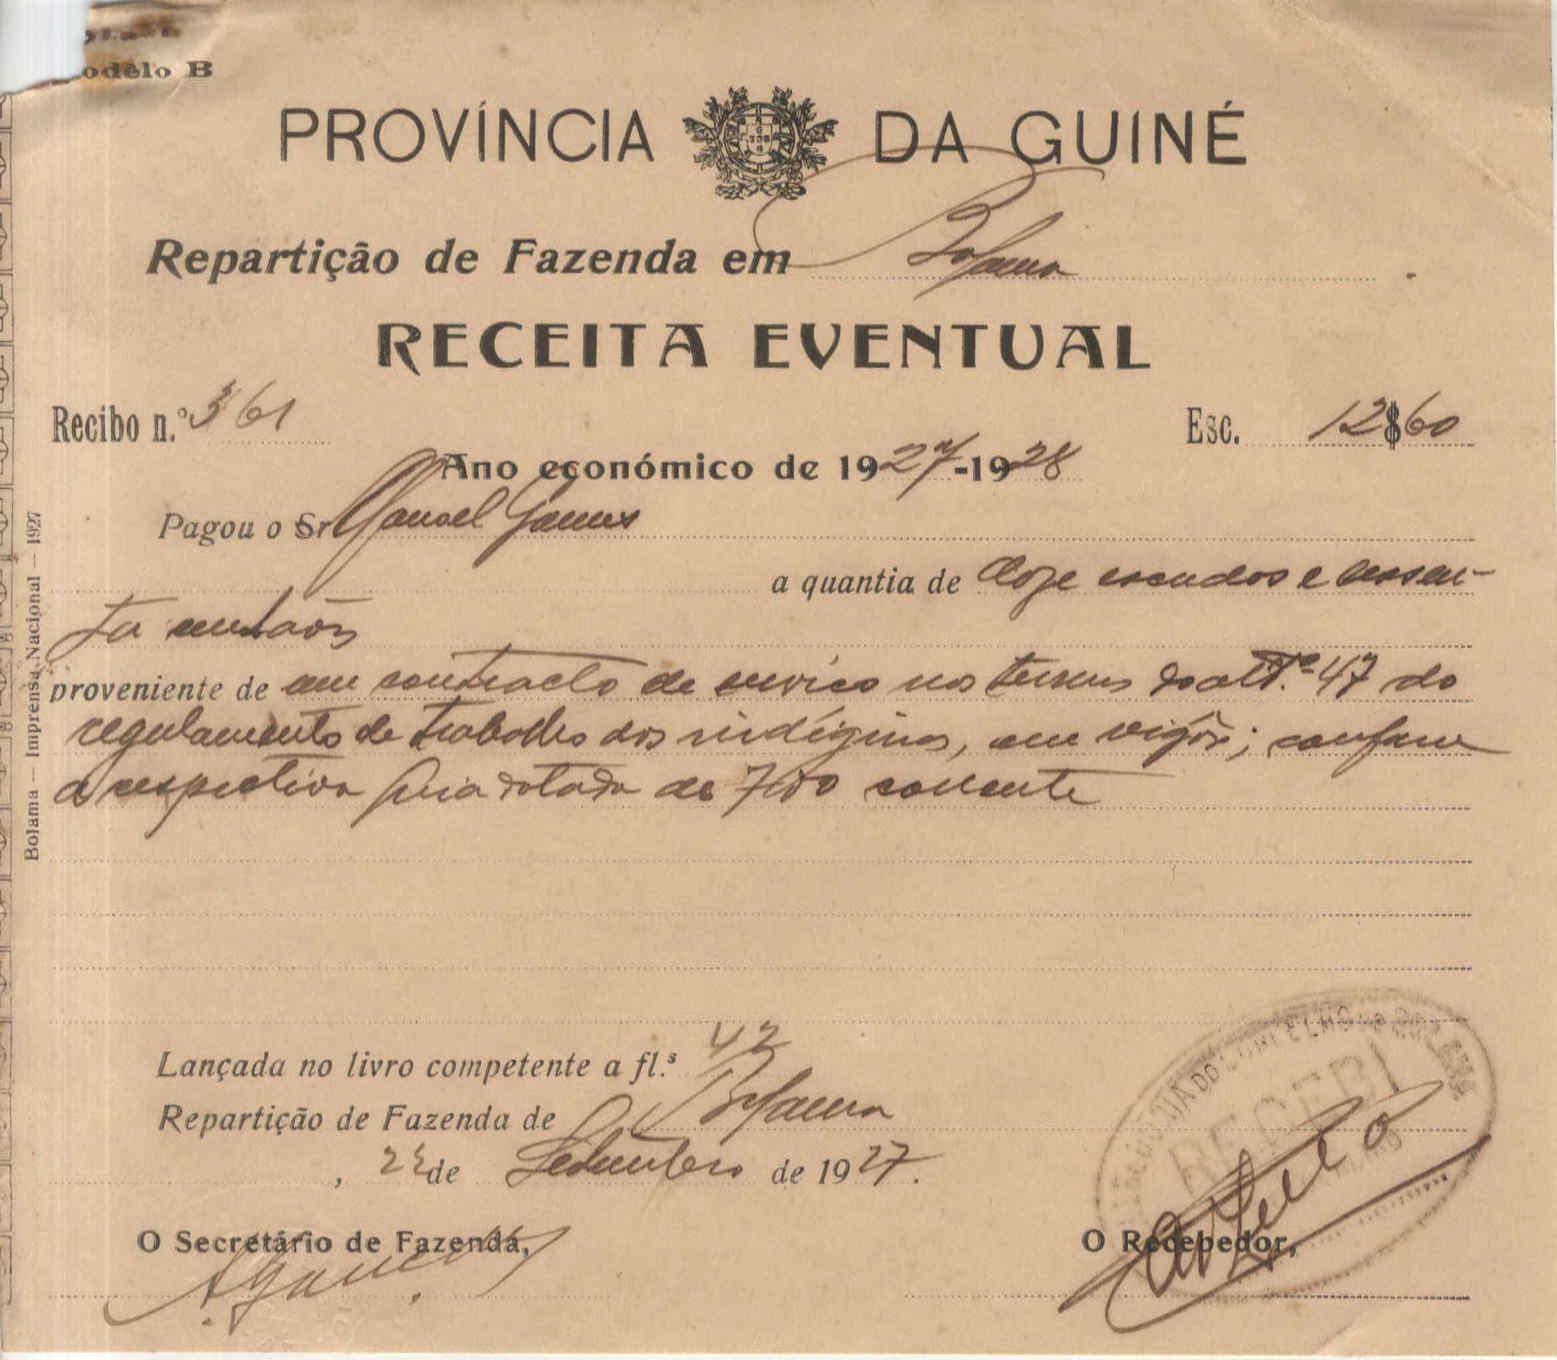 odêlo B
PROVÍNCIA DA GUINÉ
Repartição de Fazenda em Bolama
RECEITA EVENTUAL
Recibo n.º 361
Esc. 12$60
Ano económico de 1927-1928
Pagou o Sr. Manoel Gomes
a quantia de doze escudos e sessen-
ta centavos
proveniente de um contracto de serviço nos termos do artº. 47 do
regulamento de trabalho dos indíginas, em vigôr; conforme
a respectiva guia datada de 7 do corrente
Lançada no livro competente a fl.s 42
Repartição de Fazenda de Bolama
, 22 de Setembro de 1927.
O Secretário de Fazenda,
O Recebedor,
RECEBI
Bolama — Imprensa Nacional — 1927